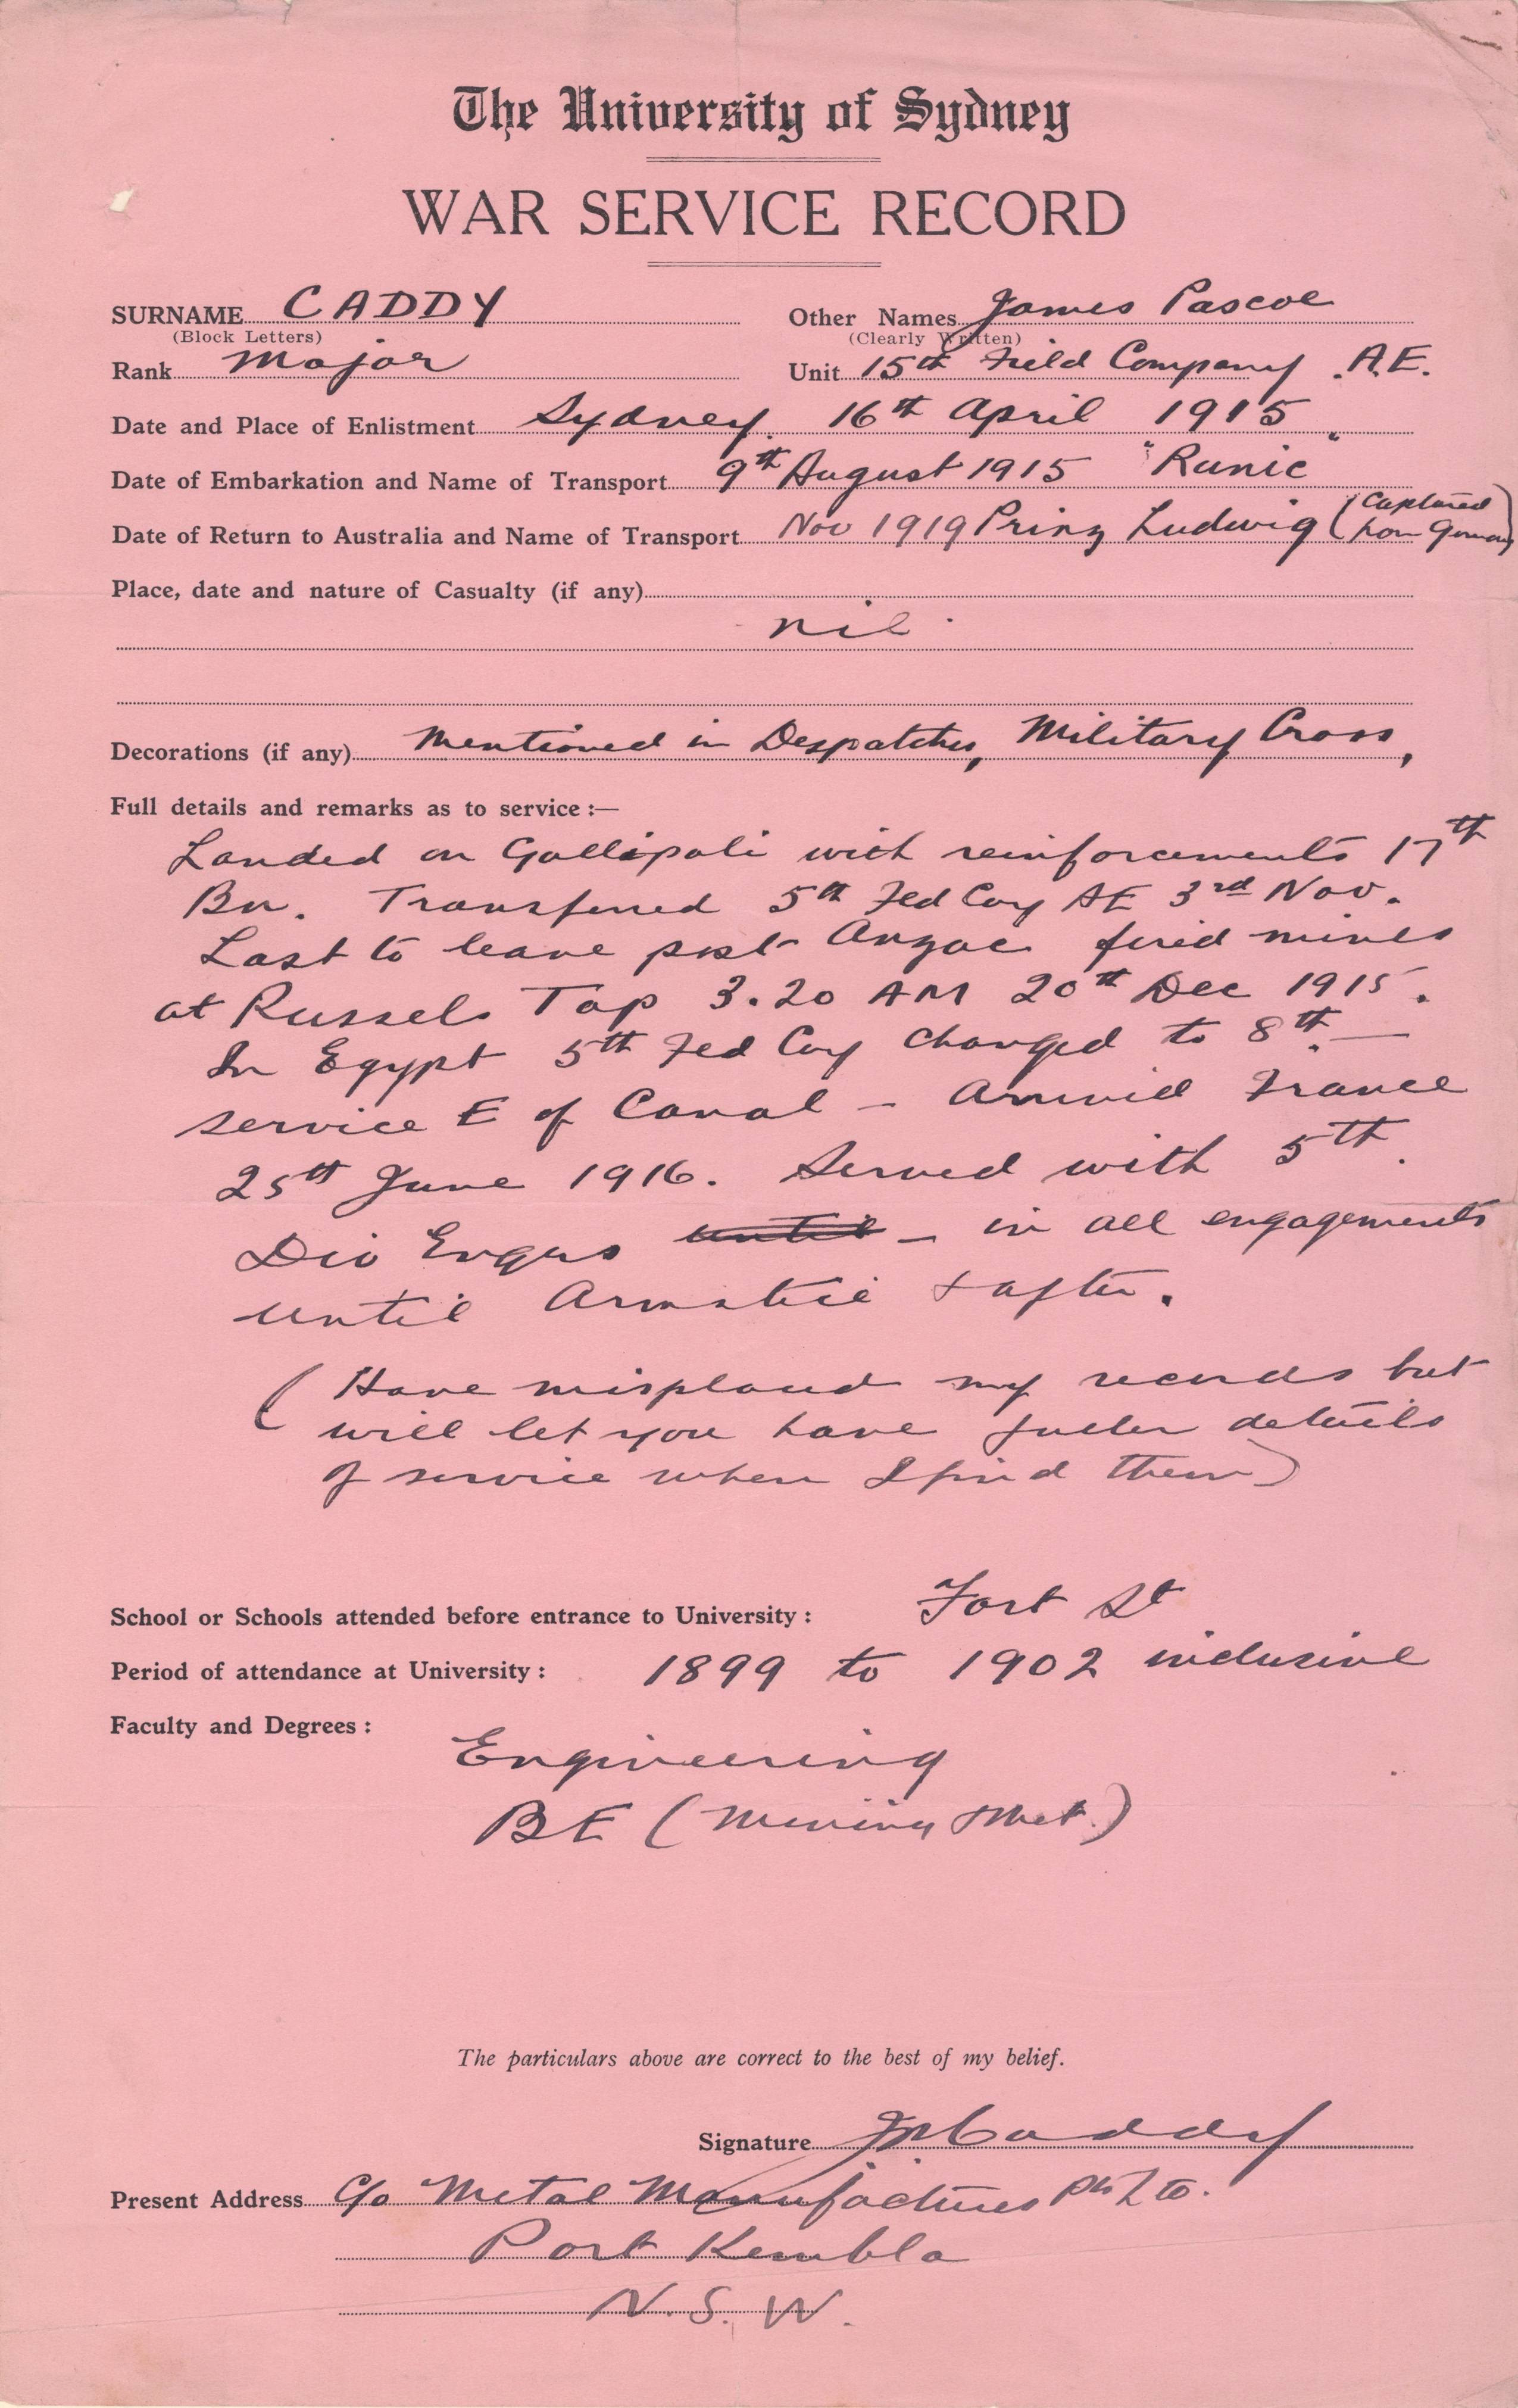 The University of Sydney
WAR SERVICE RECORD
SURNAME CADDY Other Names James Pascoe
(Block Letters) (Clearly Written)
Rank Major Unit 15th Field Company A.E.
Date and Place of Enlistment Sydney. 16th April 1915
Date of Embarkation and Name of Transport 9th August 1915 "Runic"
Date of Return to Australia and Name of Transport Nov 1919 Prinz Ludwig (Captured from Germany)
Place, date and nature of Casualty (if any)
nil
Decorations (if any) Mentioned in Despatches, Military Cross,
Full details and remarks as to service:—
Landed on Gallipoli with reinforcements 17th
Bn. Transferred 5th Fld Coy AE 3rd Nov.
Last to leave post Anzac fired mines
at Russels Top 3.20 AM 20th Dec 1915.
In Egypt 5th Fed Coy changed to 8th —
service E of Canal – Arrived France
25th June 1916. Served with 5th.
Div Engrs until – in all engagements
until Armistice & after.
(Have misplaced my records but
will let you have fuller details
of service when I find them)
School or Schools attended before entrance to University: Fort St
Period of attendance at University: 1899 to 1902 inclusive
Faculty and Degrees:
Engineering
BE (Mining & Met.)
The particulars above are correct to the best of my belief.
Signature JPCaddy
Present Address C/o Metal Manufactures Pty Ltd.
Port Kembla
N.S.W.